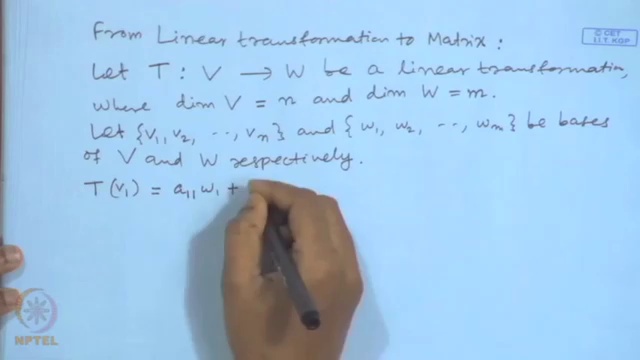 © CET
I.I.T. KGP
From Linear transformation to Matrix :
Let T : V → W be a linear transformation,
where dim V = n and dim W = m.
Let {v₁, v₂, ⋯, vₙ} and {w₁, w₂, ⋯, wₘ} be bases
of V and W respectively.
T(v₁) = a₁₁ w₁ +
NPTEL